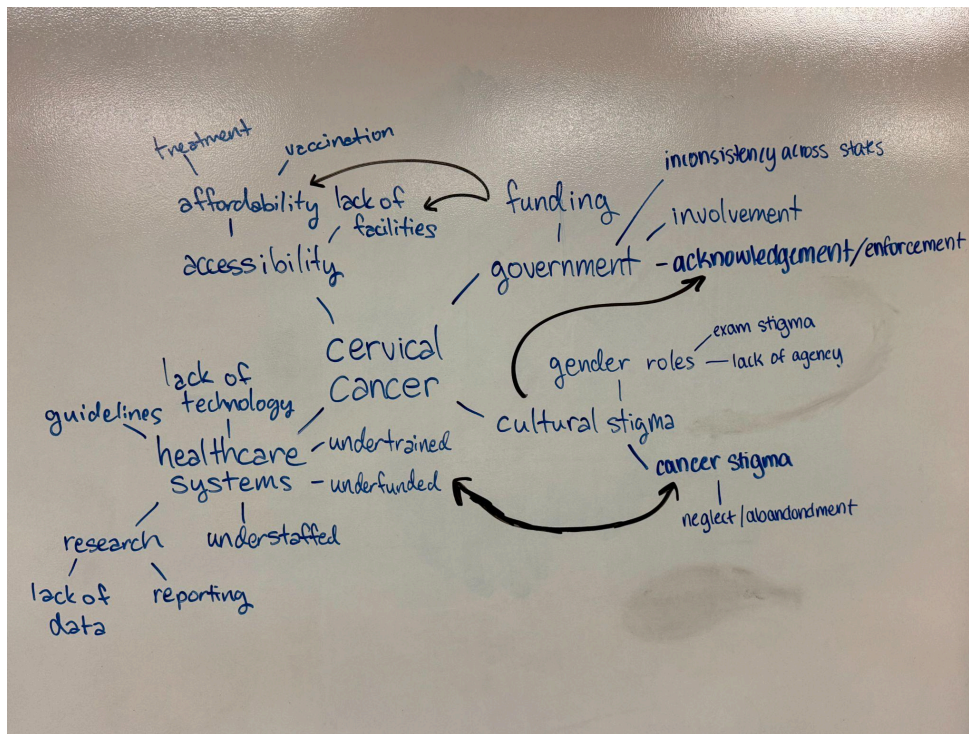 treatment
vaccination
affordability
lack of
facilities
accessibility
funding
inconsistency across states
involvement
government
acknowledgement/enforcement
cervical
cancer
gender roles
exam stigma
lack of agency
cultural stigma
cancer stigma
neglect/abandondment
lack of
technology
guidelines
healthcare
systems
undertrained
underfunded
understaffed
research
lack of
data
reporting